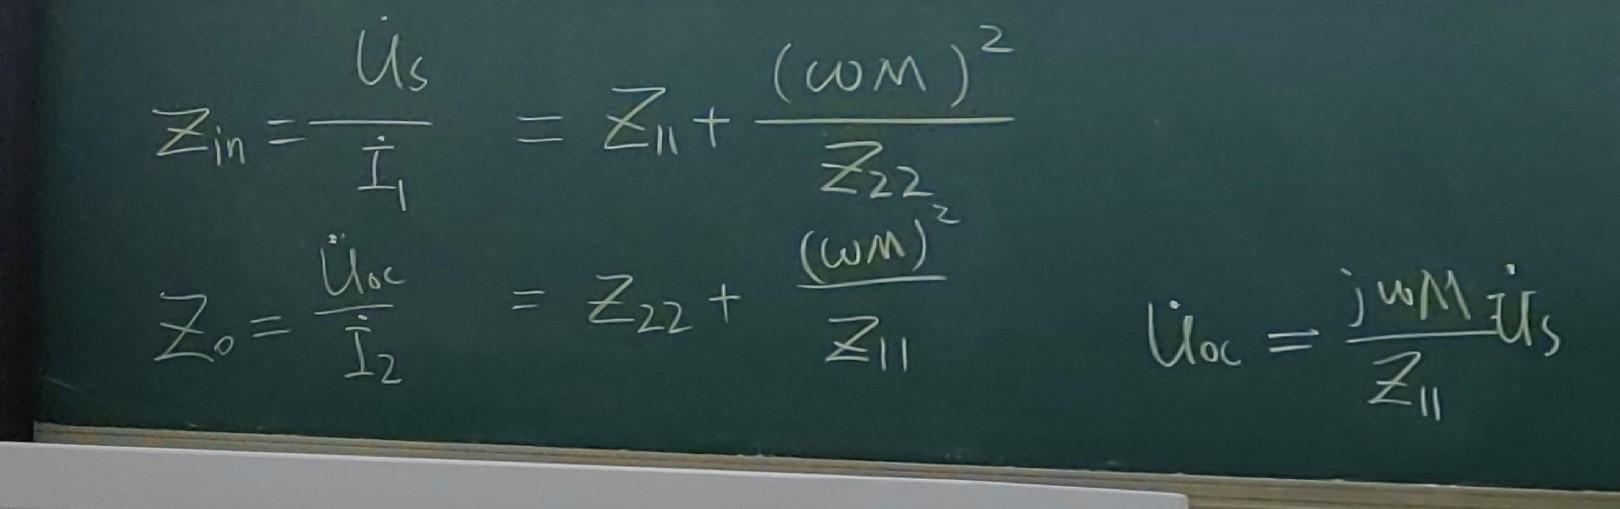 Zin = U̇s / İ1 = Z11 + (ωM)² / Z22
Zo = U̇oc / İ2 = Z22 + (ωM)² / Z11
U̇oc = jωM / Z11 U̇s